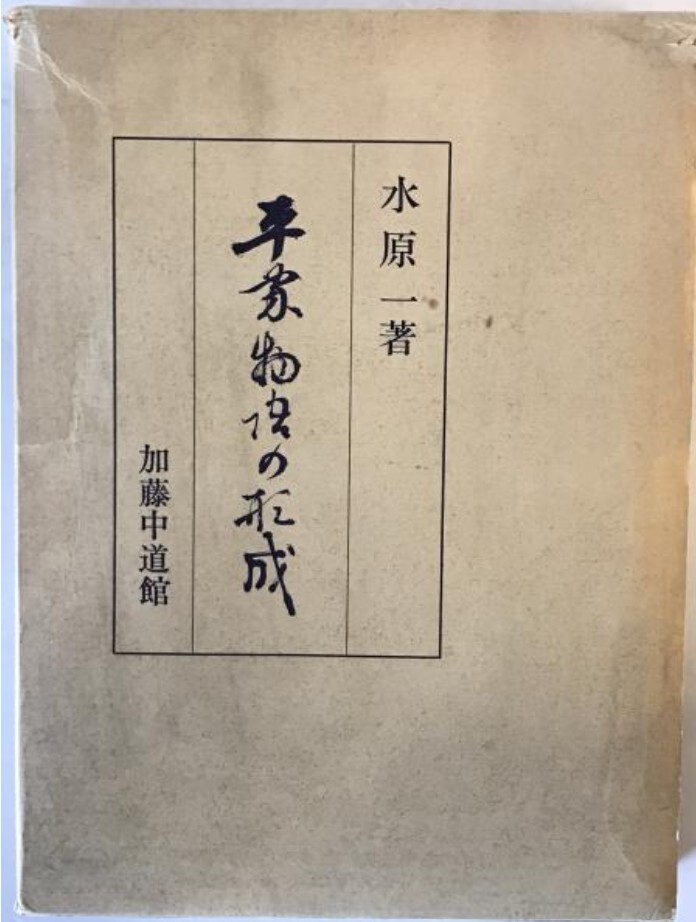 水原一著
平家物語の形成
加藤中道館